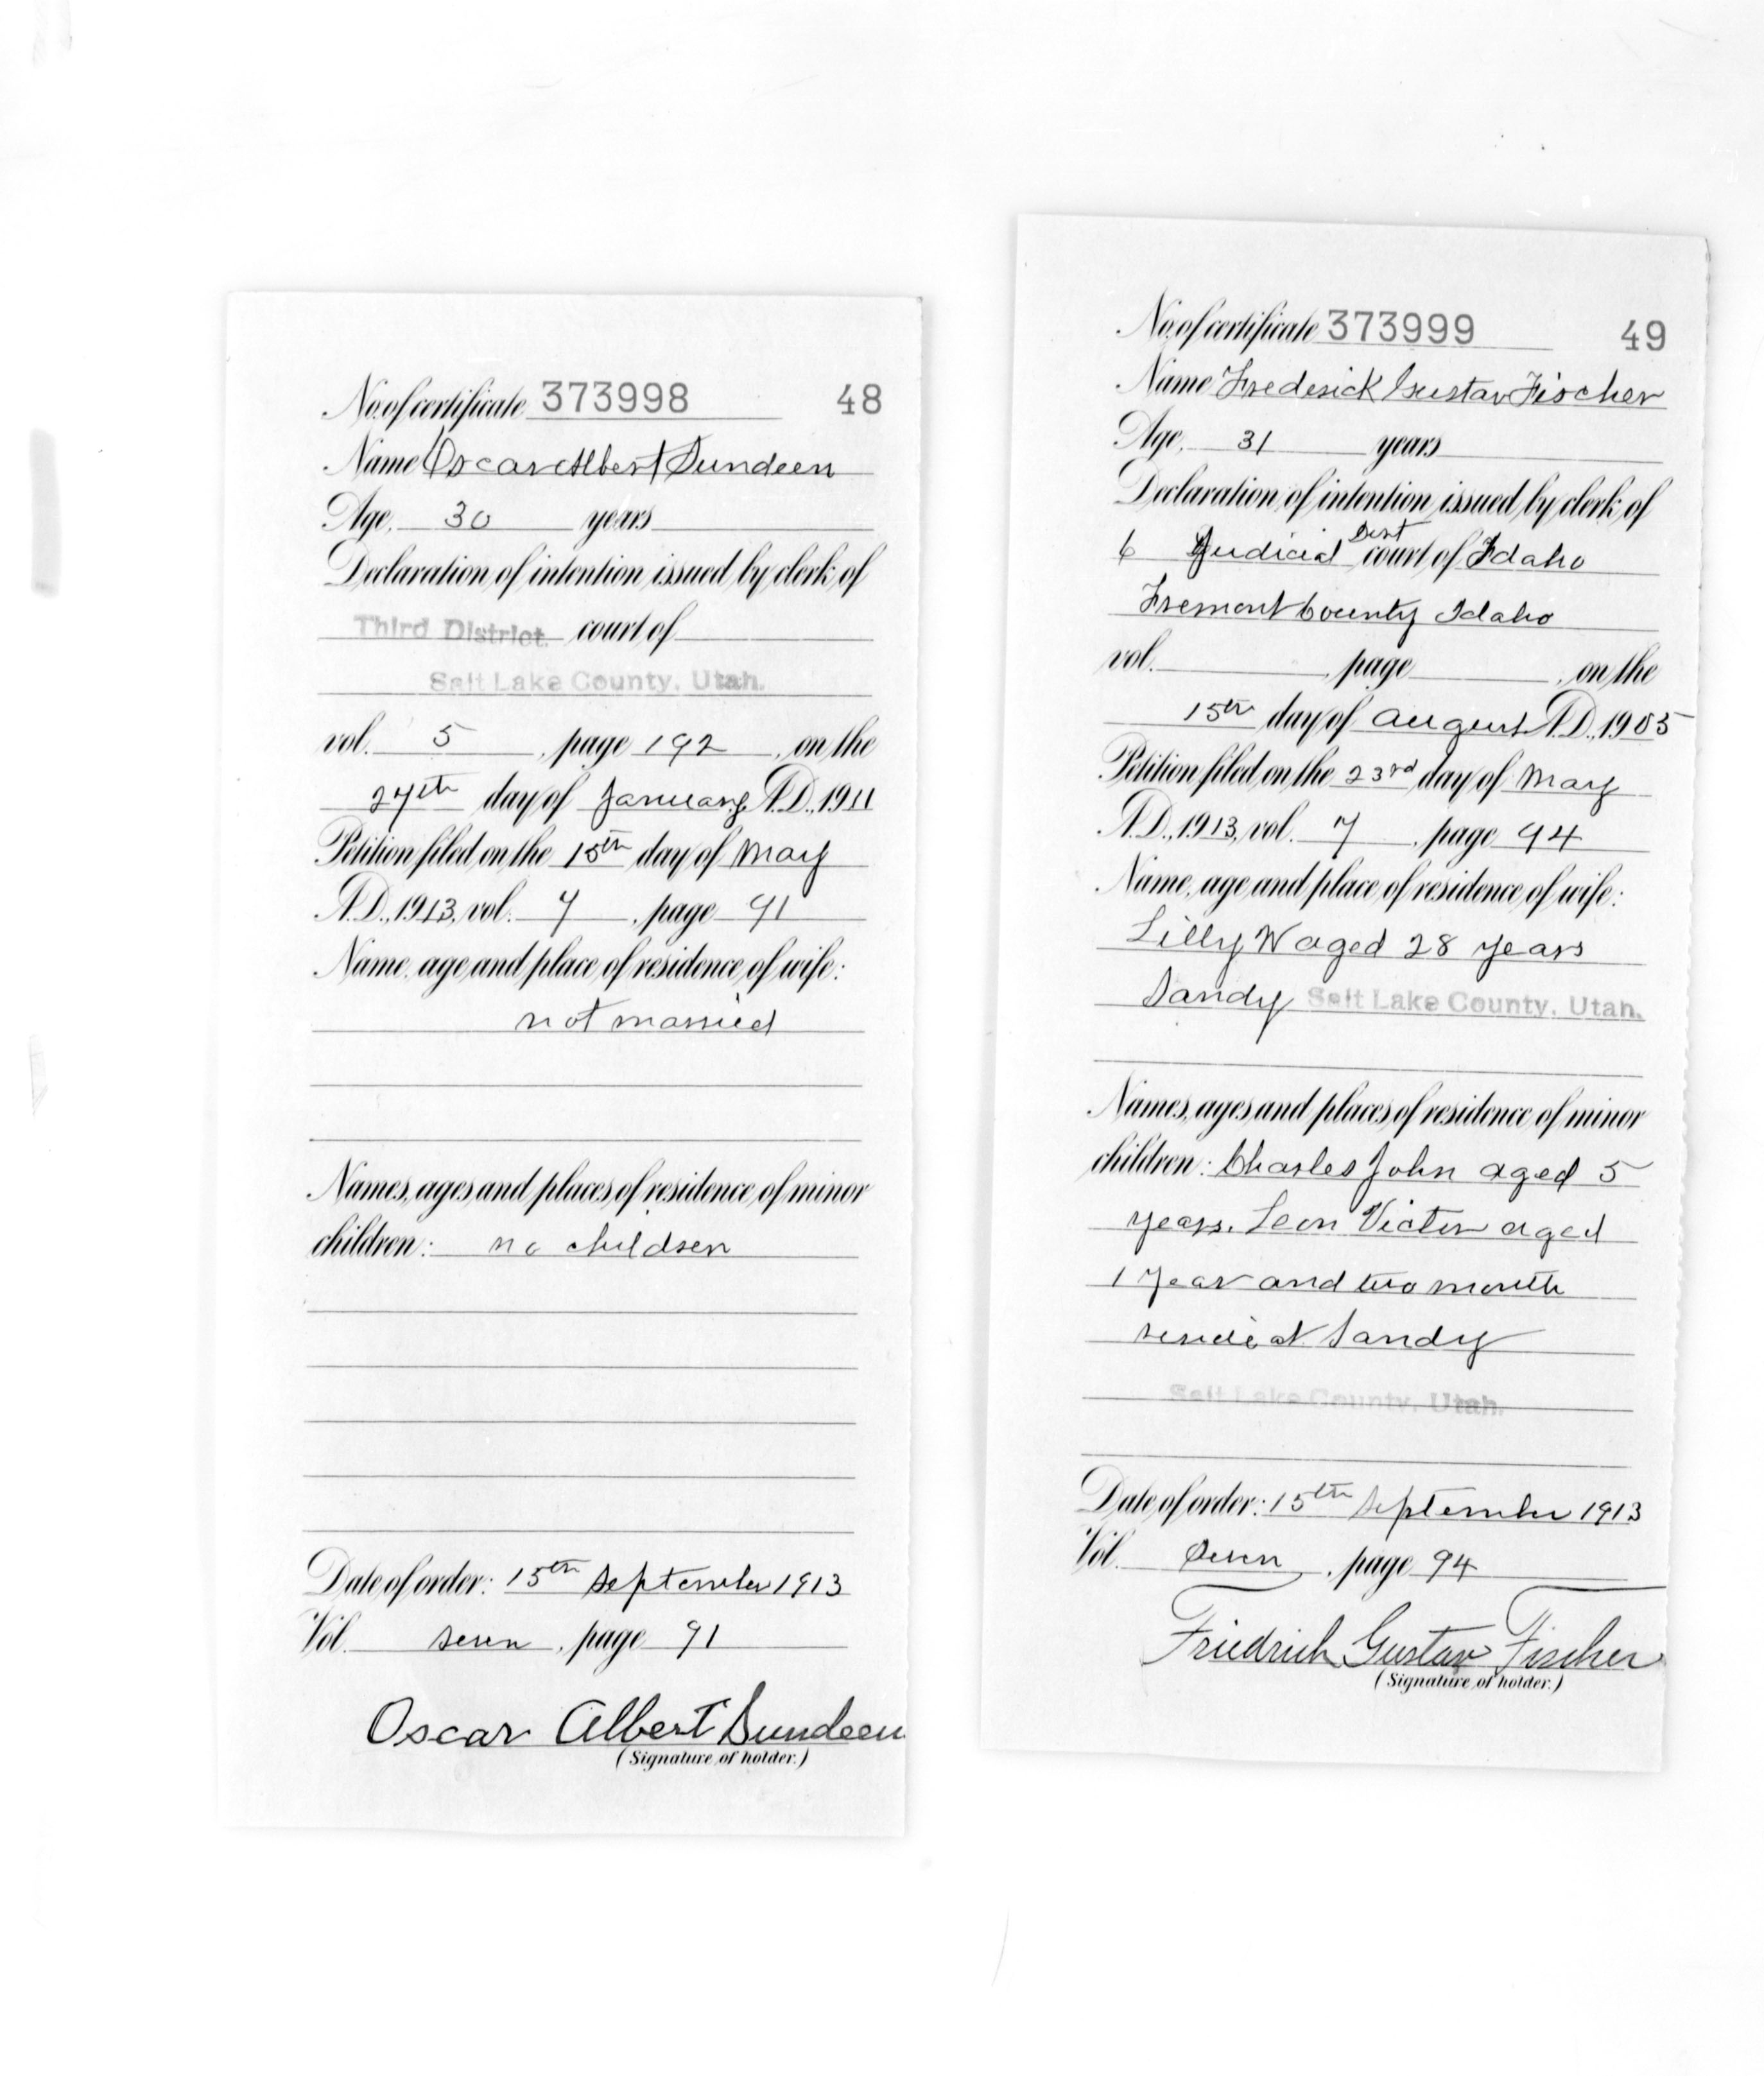 No. of certificate 373998 48
Name Oscar Albert Sundeen
Age, 30 years
Declaration of intention issued by clerk of
Third District court of
Salt Lake County, Utah.
vol. 5, page 192, on the
27th day of January A.D., 1911
Petition filed on the 15th day of May
A.D., 1913, vol. 7, page 91
Name, age and place of residence of wife:
not married
Names, ages and places of residence of minor
children: no children
Date of order: 15th September 1913
Vol. seven, page 91
Oscar Albert Sundeen
(Signature of holder.)
No. of certificate 373999 49
Name Frederick Gustav Fischer
Age, 31 years
Declaration of intention issued by clerk of
6 Judicial Dist court of Idaho
Fremont County Idaho
vol. , page , on the
15th day of August A.D., 1905
Petition filed on the 23rd day of May
A.D., 1913, vol. 7, page 94
Name, age and place of residence of wife:
Lilly W aged 28 years
Sandy Salt Lake County, Utah.
Names, ages and places of residence of minor
children: Charles John aged 5
years. Leon Victor aged
1 year and two month
reside at Sandy
Salt Lake County, Utah.
Date of order: 15th September 1913
Vol. seven, page 94
Friedrich Gustav Fischer
(Signature of holder.)